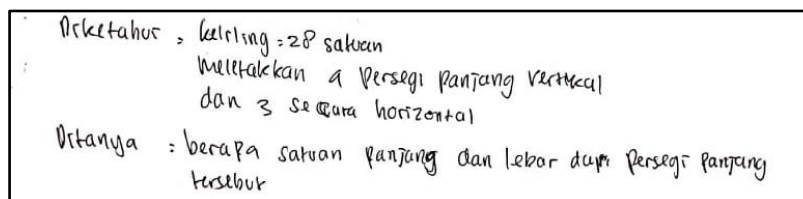 Diketahui : keliling = 28 satuan
meletakkan 4 Persegi Panjang vertikal
dan 3 secara horizontal
Ditanya : berapa satuan panjang dan lebar dari persegi panjang
tersebut